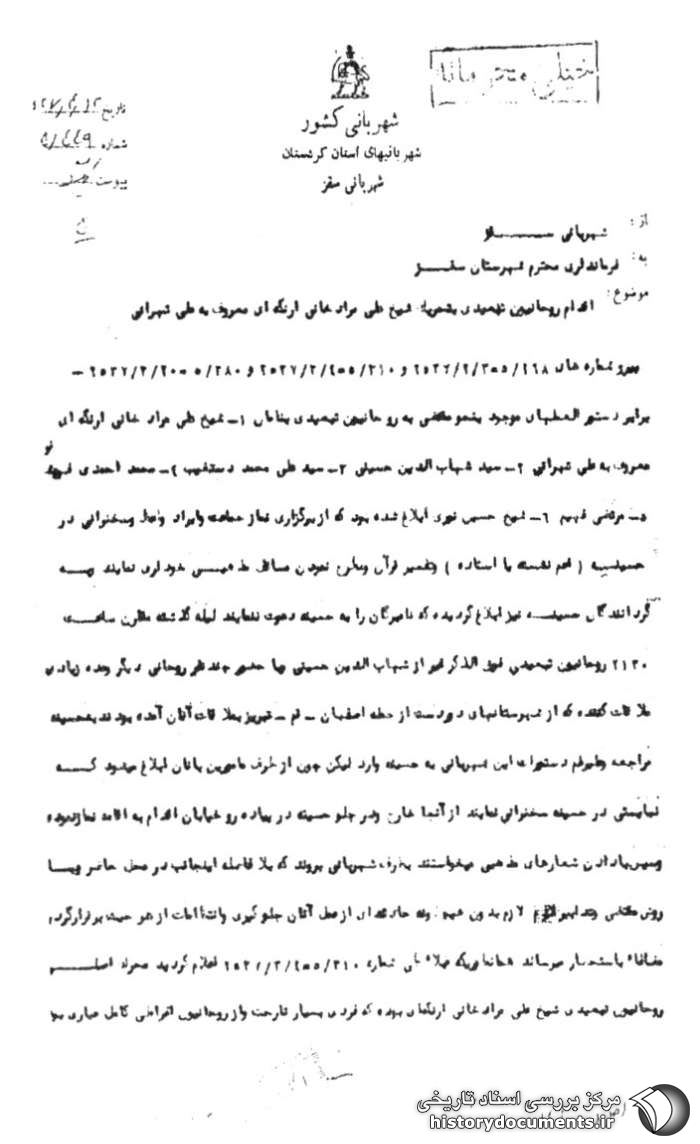 خیلی محرمانه
شهربانی کشور
شهربانیهای استان کردستان
شهربانی سقز
تاریخ
شماره
پیوست
از: شهربانی سقز
به: فرمانداری محترم شهرستان سقز
موضوع: اقدام روحانیون تبعیدی بتحریک شیخ علی مراد خانی ارنگه ای معروف به علی تهرانی
پیرو شماره های
برابر دستورالعملهای موجود بنحو مقتضی به روحانیون تبعیدی بنامان ۱ـ شیخ علی مراد خانی ارنگه ای
معروف به علی تهرانی ۲ـ سید شهاب الدین حسینی ۳ـ سید علی محمد دستغیب ٤ـ محمد احمدی
۵ـ مرتضی فهیم ٦ـ شیخ حسین نوری ابلاغ شده بود که از برگزاری نماز جماعت وایراد وعظ وسخنرانی در
حسینیه ( اعم نشسته یا استاده ) وتفسیر قرآن ومطرح نمودن مسائل مذهبی خودداری نمایند وبه
گردانندگان حسینیه نیز ابلاغ گردیده که نامبردگان را به حسینیه دعوت ننمایند لیله گذشته مقارن ساعت
۲۱۳۰ روحانیون تبعیدی فوق الذکر غیر از شهاب الدین حسینی وبا حضور چند نفر روحانی دیگر وعده زیادی
ملاقات کننده که از شهرستانهای دوردست از جمله اصفهان ـ قم ـ تبریز بملاقات آنان آمده بودند بحسینیه
مراجعه وعلیرغم دستورات این شهربانی به حسینیه وارد لیکن چون از طرف مامورین بانان ابلاغ میشود که
نبایستی در حسینیه سخنرانی نمایند از آنجا خارج ودر جلو حسینیه در پیاده رو خیابان اقدام به اقامه نماز نموده
وسپس بادادن شعارهای مذهبی میخواستند بطرف شهربانی بروند که بلافاصله اینجانب در محل حاضر وبا
روش مقتضی وتدابیر لازم بدون هیچگونه حادثه ای از عمل آنان جلوگیری وانتظامات از هر حیث برقرار گردید
مضافا باستحضار میرساند همانطوریکه شماره اعلام گردید محرک اصلی
روحانیون تبعیدی شیخ علی مراد خانی ارنگه ای بوده که فردی بسیار ناراحت واز روحانیون افراطی کامل عیاری
مرکز بررسی اسناد تاریخی
historydocuments.ir